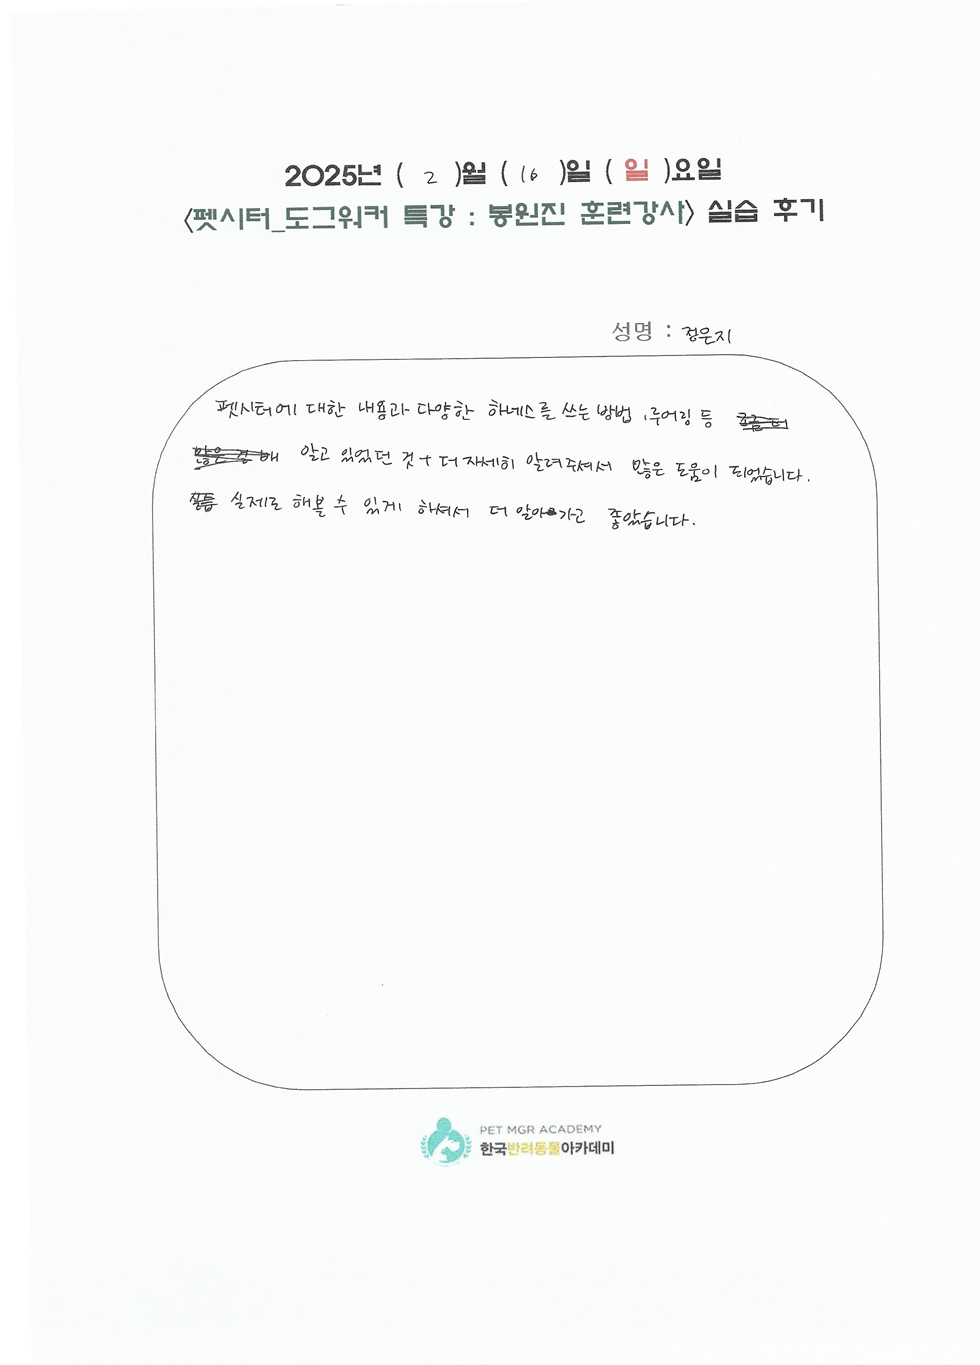 2025년 ( 2 )월 ( 16 )일 ( 일 )요일
<펫시터_도그워커 특강 : 봉원진 훈련강사> 실습 후기
성명 : 정은지
펫시터에 대한 내용과 다양한 하네스를 쓰는 방법, 루어링 등
알고 있었던 것 + 더 자세히 알려주셔서 많은 도움이 되었습니다.
실제로 해볼 수 있게 하셔서 더 알아가고 좋았습니다.
PET MGR ACADEMY
한국반려동물아카데미